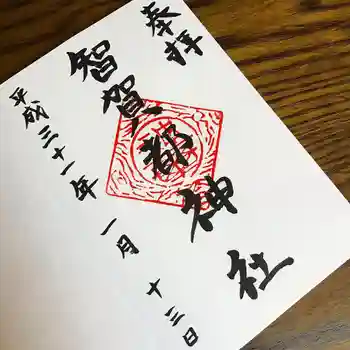 奉拝
智賀都神社
平成三十一年一月十三日